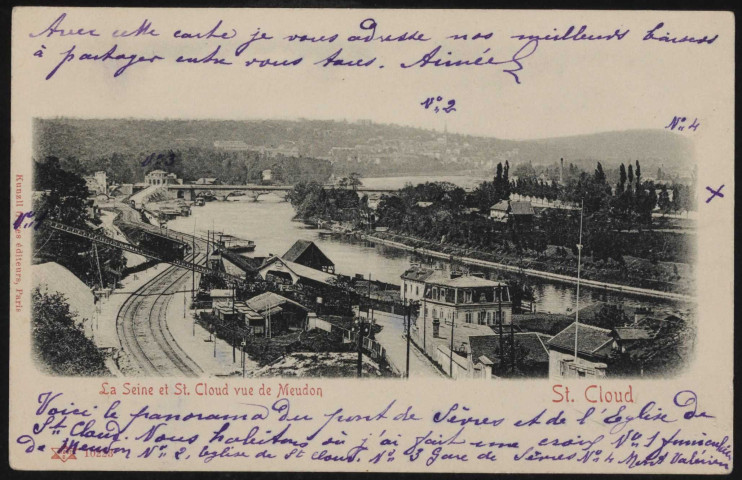 Avec cette carte je vous adresse nos meilleurs baisers
à partager entre vous tous. Aimée
No 2
No 4
No 3
No 1
X
Kunzli éditeurs, Paris
La Seine et St. Cloud vue de Meudon
St. Cloud
Voici le panorama du pont de Sèvres et de l'Eglise de
St Cloud. Nous habitons où j'ai fait une croix No 1 funiculaire
de Meudon No 2. Eglise de St Cloud. No 3 Gare de Sèvres No 4 Mont Valérien